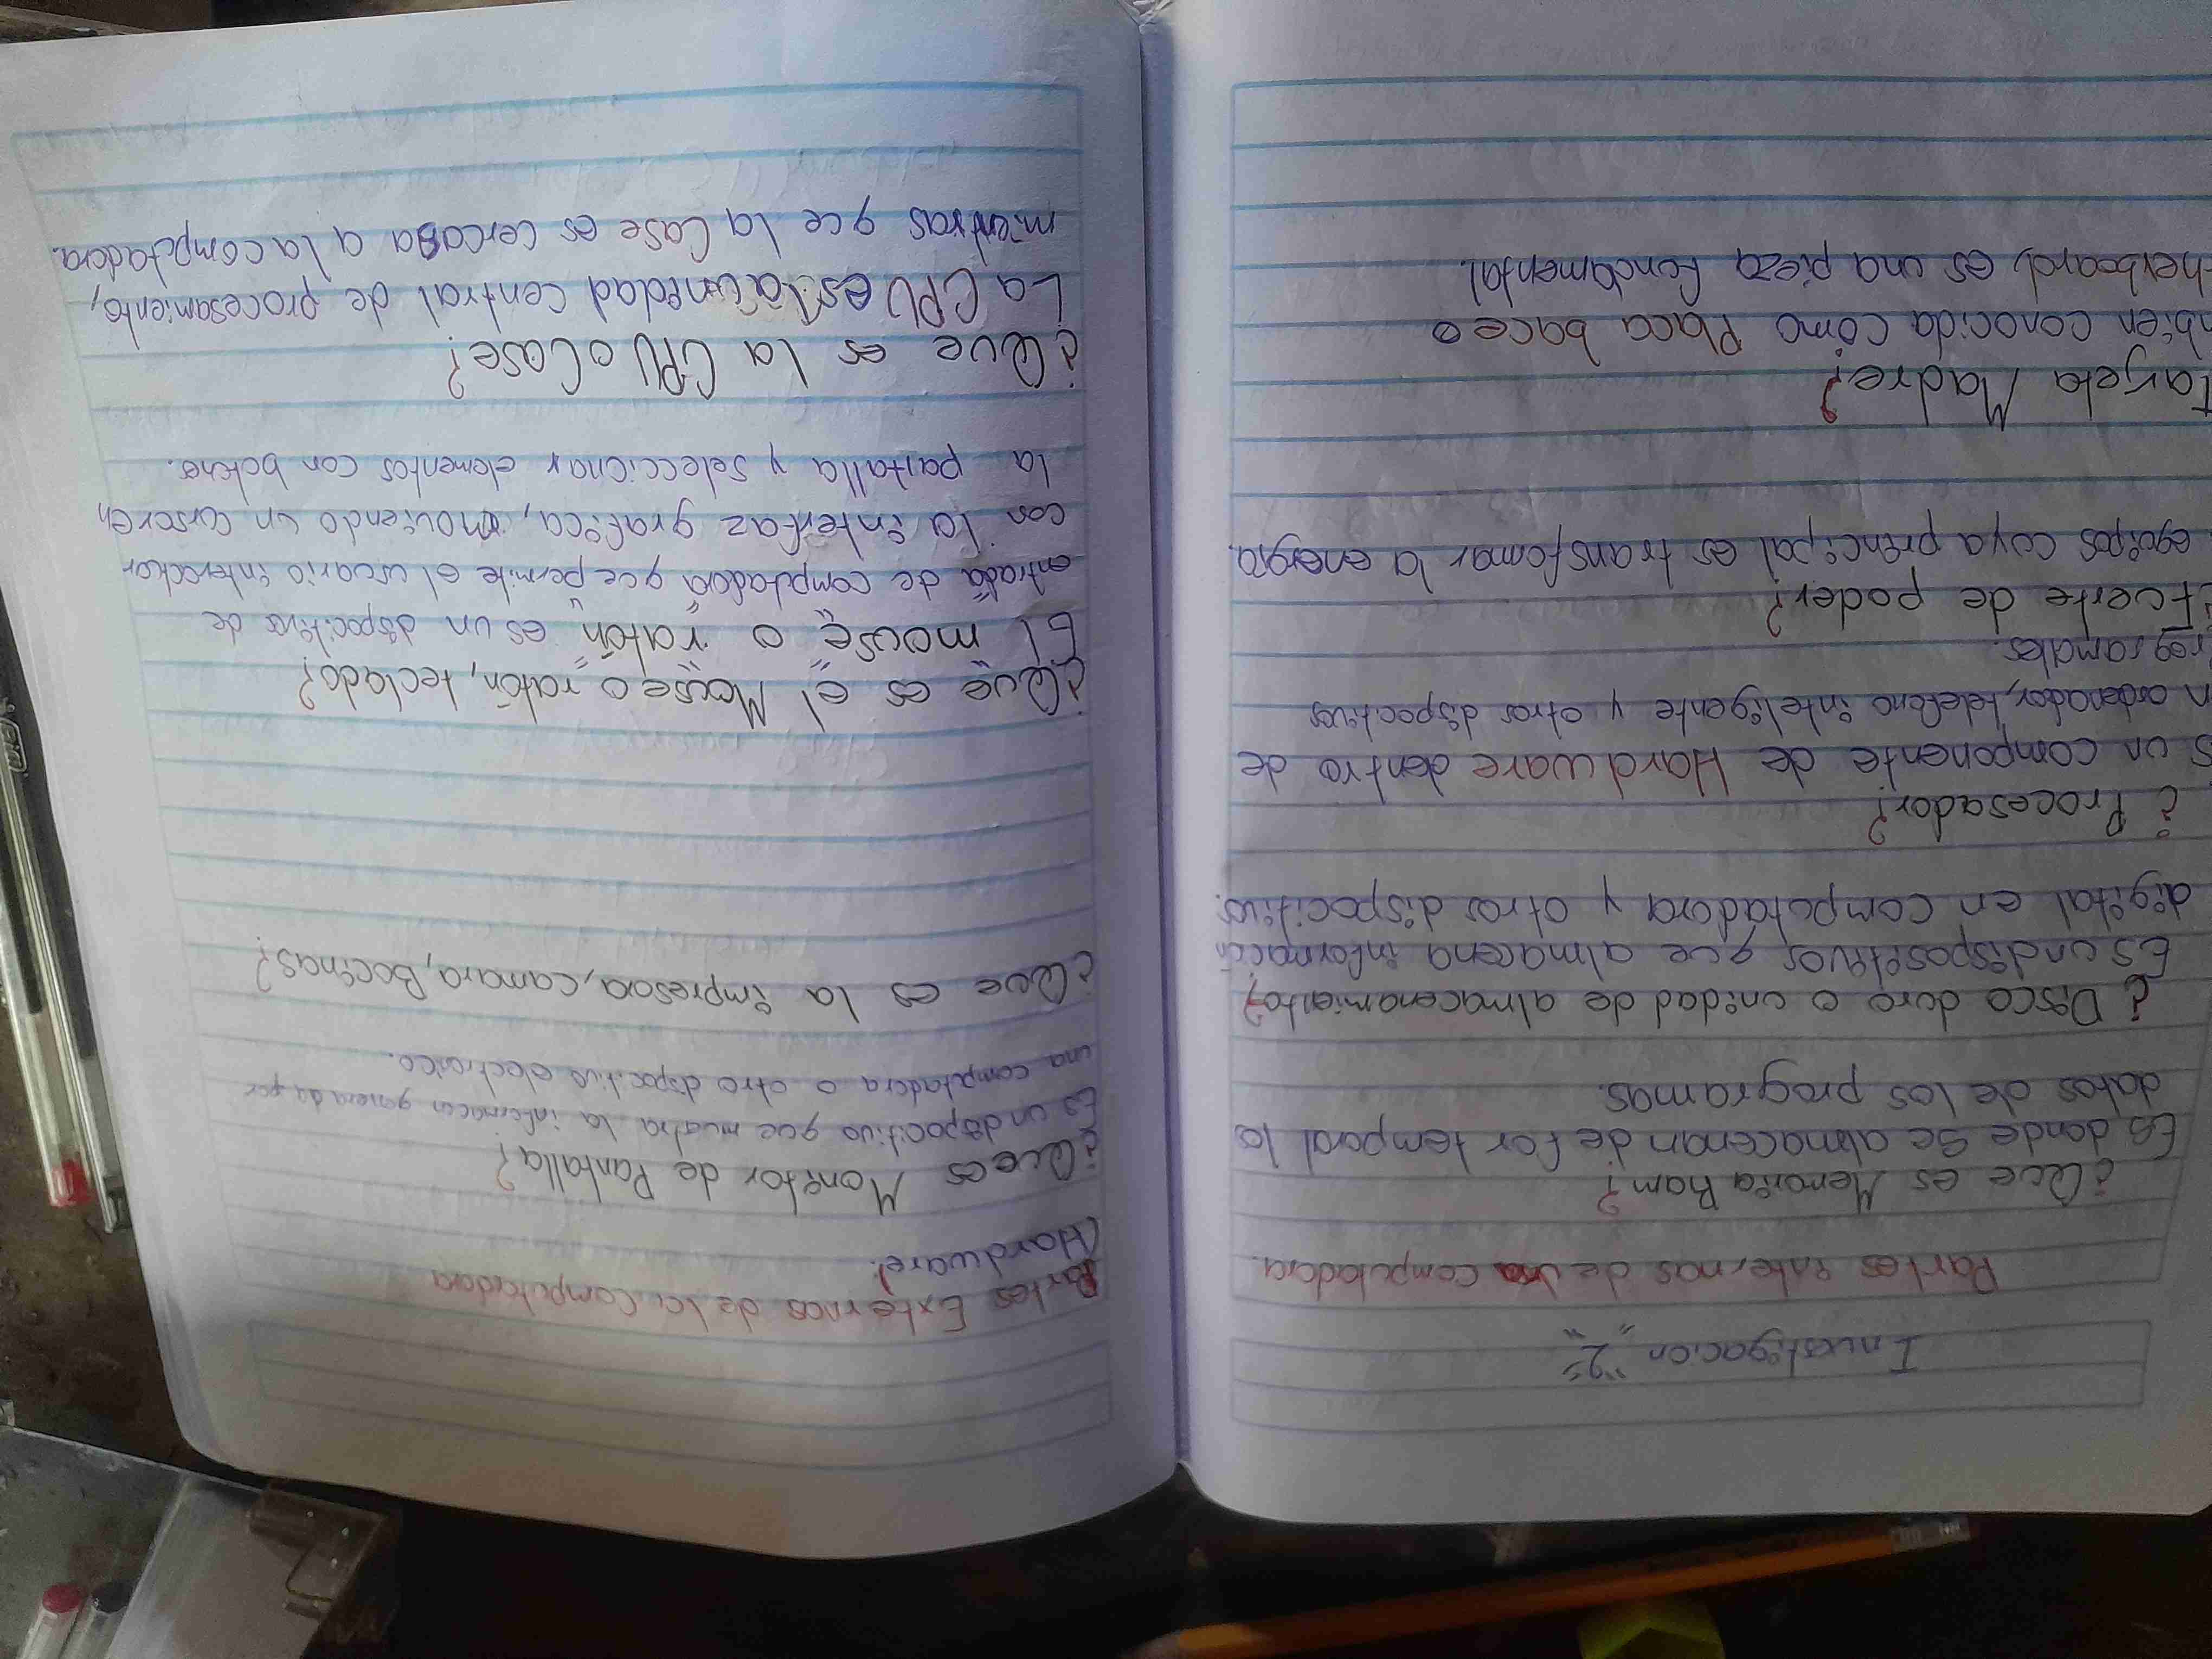 Investigacion "2"
Partes internas de una computadora.
¿Que es Memoria Ram?
Es donde se almacenan de for temporal lo
datos de los programas.
¿Disco duro o unidad de almacenamiento?
Es undispositivos que almacena informacion
digital en computadora y otros dispocitivos.
¿Procesador?
s un componente de Hardware dentro de
n ordenador, telefono inteligente y otros dispocitivos
rogramales.
¿Fuente de poder?
equipos cuya principal es transfomar la energia.
Tarjeta Madre?
nbien conocida como Placa bace o
herboard, es una pieza fundamental.
Partes Externas de la computadora
(Hardware).
¿Que es Monitor de Pantalla?
Es un dispocitivo que muestra la informacion generada por
una computadora o otro dispocitivo electronico.
¿Que es la impresora, camara, Bocinas?
¿Que es el Mouse o ratón, teclado?
El "mouse" o "ratón" es un dispocitivo de
entrada de computadora que permite el usuario interactuar
con la interfaz grafica, moviendo un cursor en
la pantalla y seleccionar elementos con botones.
¿Que es la CPU o Case?
La CPU es la unidad central de procesamiento,
mientras que la Case es cercasa a la computadora.